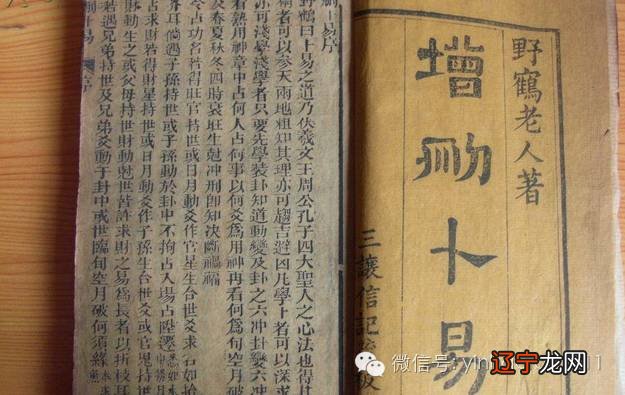 野鶴老人著
增刪卜易
三讓信記
卜易序
野鶴曰卜易之道乃伏羲文王周公孔子四大聖人之心法也得其
者可以參天兩地粗知其理亦可趨吉避凶凡學卜者可以深求
亦可淺學淺學者只要先學裝卦知道動變及卦之六冲卦變六冲
看熟用神章中占何人占何事以何爻爲用神再看何爲旬空月破
及春夏秋冬四時衰旺生尅冲刑即知決斷禍福
占功名若得旺官持世或日月動爻作官星生合世爻求名如拾
芥耳倘遇子孫持世或子孫動於卦中不拘占入場占陞遷
占求財若得財星持世或日月動爻作子孫生合世爻或官鬼持世
財動生之或父母持世財動尅世皆許求財之易爲長者以折枝耳
若遇兄弟持世及兄弟爻動于卦中或世臨旬空月破何須緣
卜易
序
微信号: yin
辽宁龙网
1